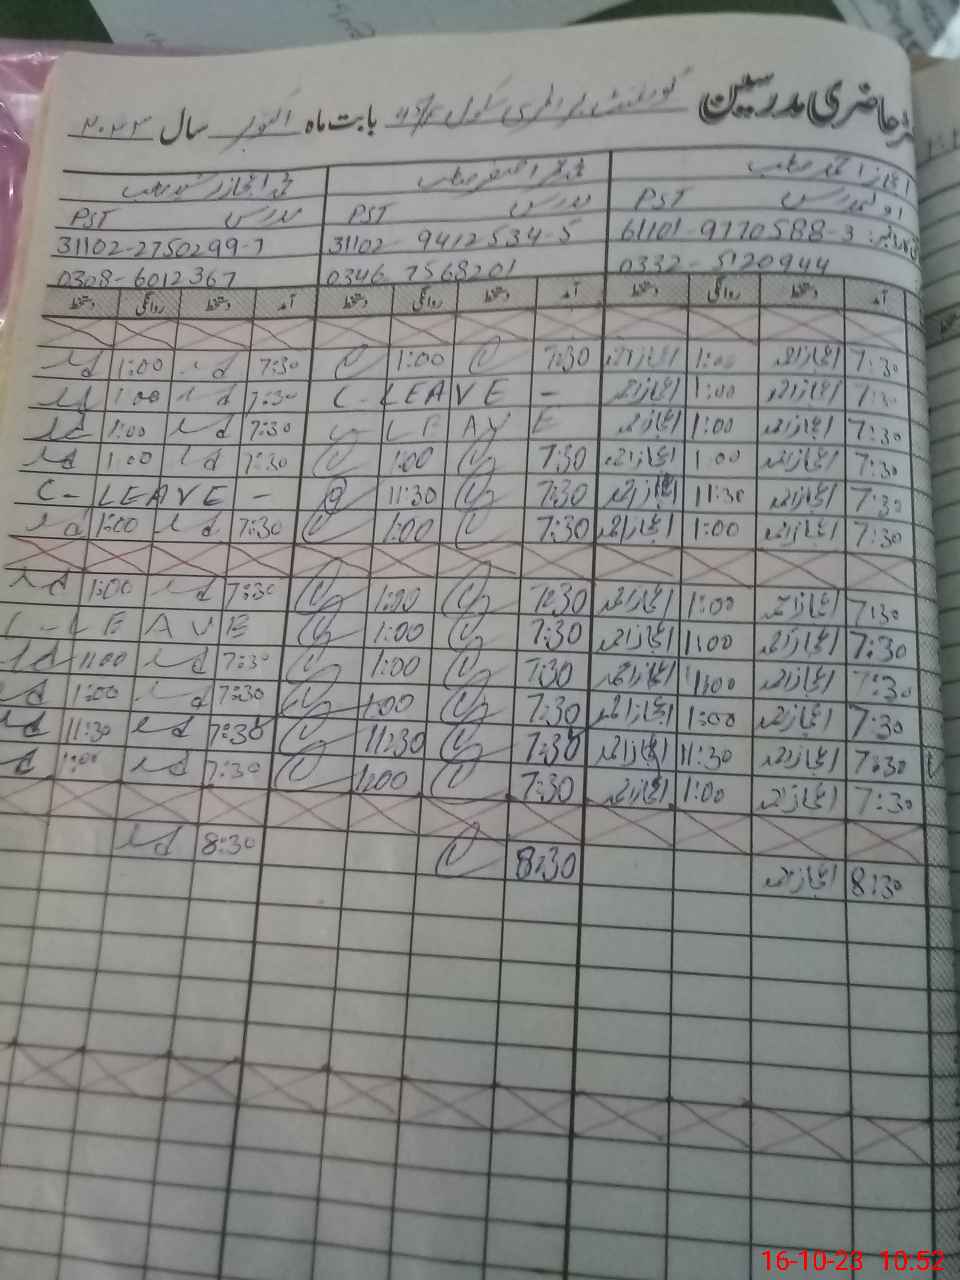 حاضری مدرسین گورنمنٹ پرائمری سکول بابت ماہ اکتوبر سال ۲۰۲۳
اعجاز احمد صاحب اصغر صاحب
PST مدرس PST مدرس PST
61101-9770588-3 31102-9412534-5 31102-2750299-7
0332-5120944 0346-7568201 0308-6012367
آمد دستخط روانگی دستخط آمد دستخط روانگی دستخط آمد دستخط روانگی دستخط
7:30 اعجاز احمد 1:00 اعجاز احمد 7:30 1:00 7:30 1:00
7:30 اعجاز احمد 1:00 اعجاز احمد C-LEAVE - 7:30 1:00
7:30 اعجاز احمد 1:00 اعجاز احمد C-LEAVE 7:30 1:00
7:30 اعجاز احمد 1:00 اعجاز احمد 7:30 1:00 7:30 1:00
7:30 اعجاز احمد 11:30 اعجاز احمد 7:30 11:30 C-LEAVE -
7:30 اعجاز احمد 1:00 اعجاز احمد 7:30 1:00 7:30 1:00
7:30 اعجاز احمد 1:00 اعجاز احمد 7:30 1:00 7:30 1:00
7:30 اعجاز احمد 1:00 اعجاز احمد 7:30 1:00 C-LEAVE
7:30 اعجاز احمد 1:00 اعجاز احمد 7:30 1:00 7:30 1:00
7:30 اعجاز احمد 1:00 اعجاز احمد 7:30 1:00 7:30 1:00
7:30 اعجاز احمد 11:30 اعجاز احمد 7:30 11:30 7:30 11:30
7:30 اعجاز احمد 1:00 اعجاز احمد 7:30 1:00 7:30 1:00
8:30 اعجاز احمد 8:30 8:30
16-10-23 10:52